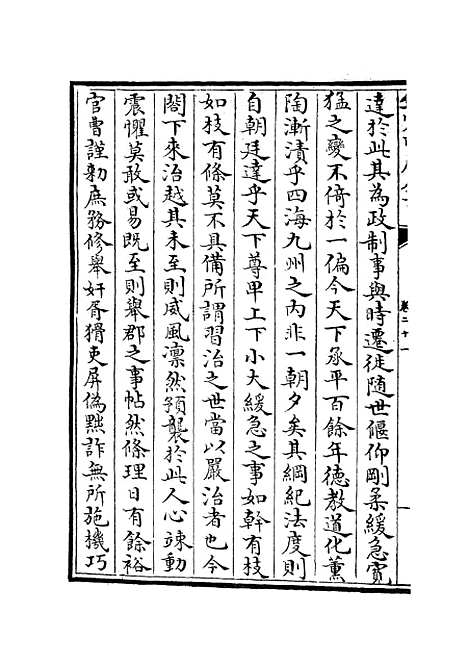 達於此其為政制事與時遷徙随世偃仰剛柔緩急寛
猛之變不倚於一偏今天下承平百餘年德教道化薫
陶漸漬乎四海九州之内非一朝夕矣其綱紀法度則
自朝廷達乎天下尊卑上下小大緩急之事如幹有枝
如枝有條莫不具備所謂習治之世當以嚴治者也今
閤下來治越其未至則威風凛然預襲於此人心竦動
震懼莫敢或易既至則舉郡之事帖然條理日有餘裕
官曹謹勑庶務修舉奸胥猾吏屏偽黜詐無所施機巧
卷二十一